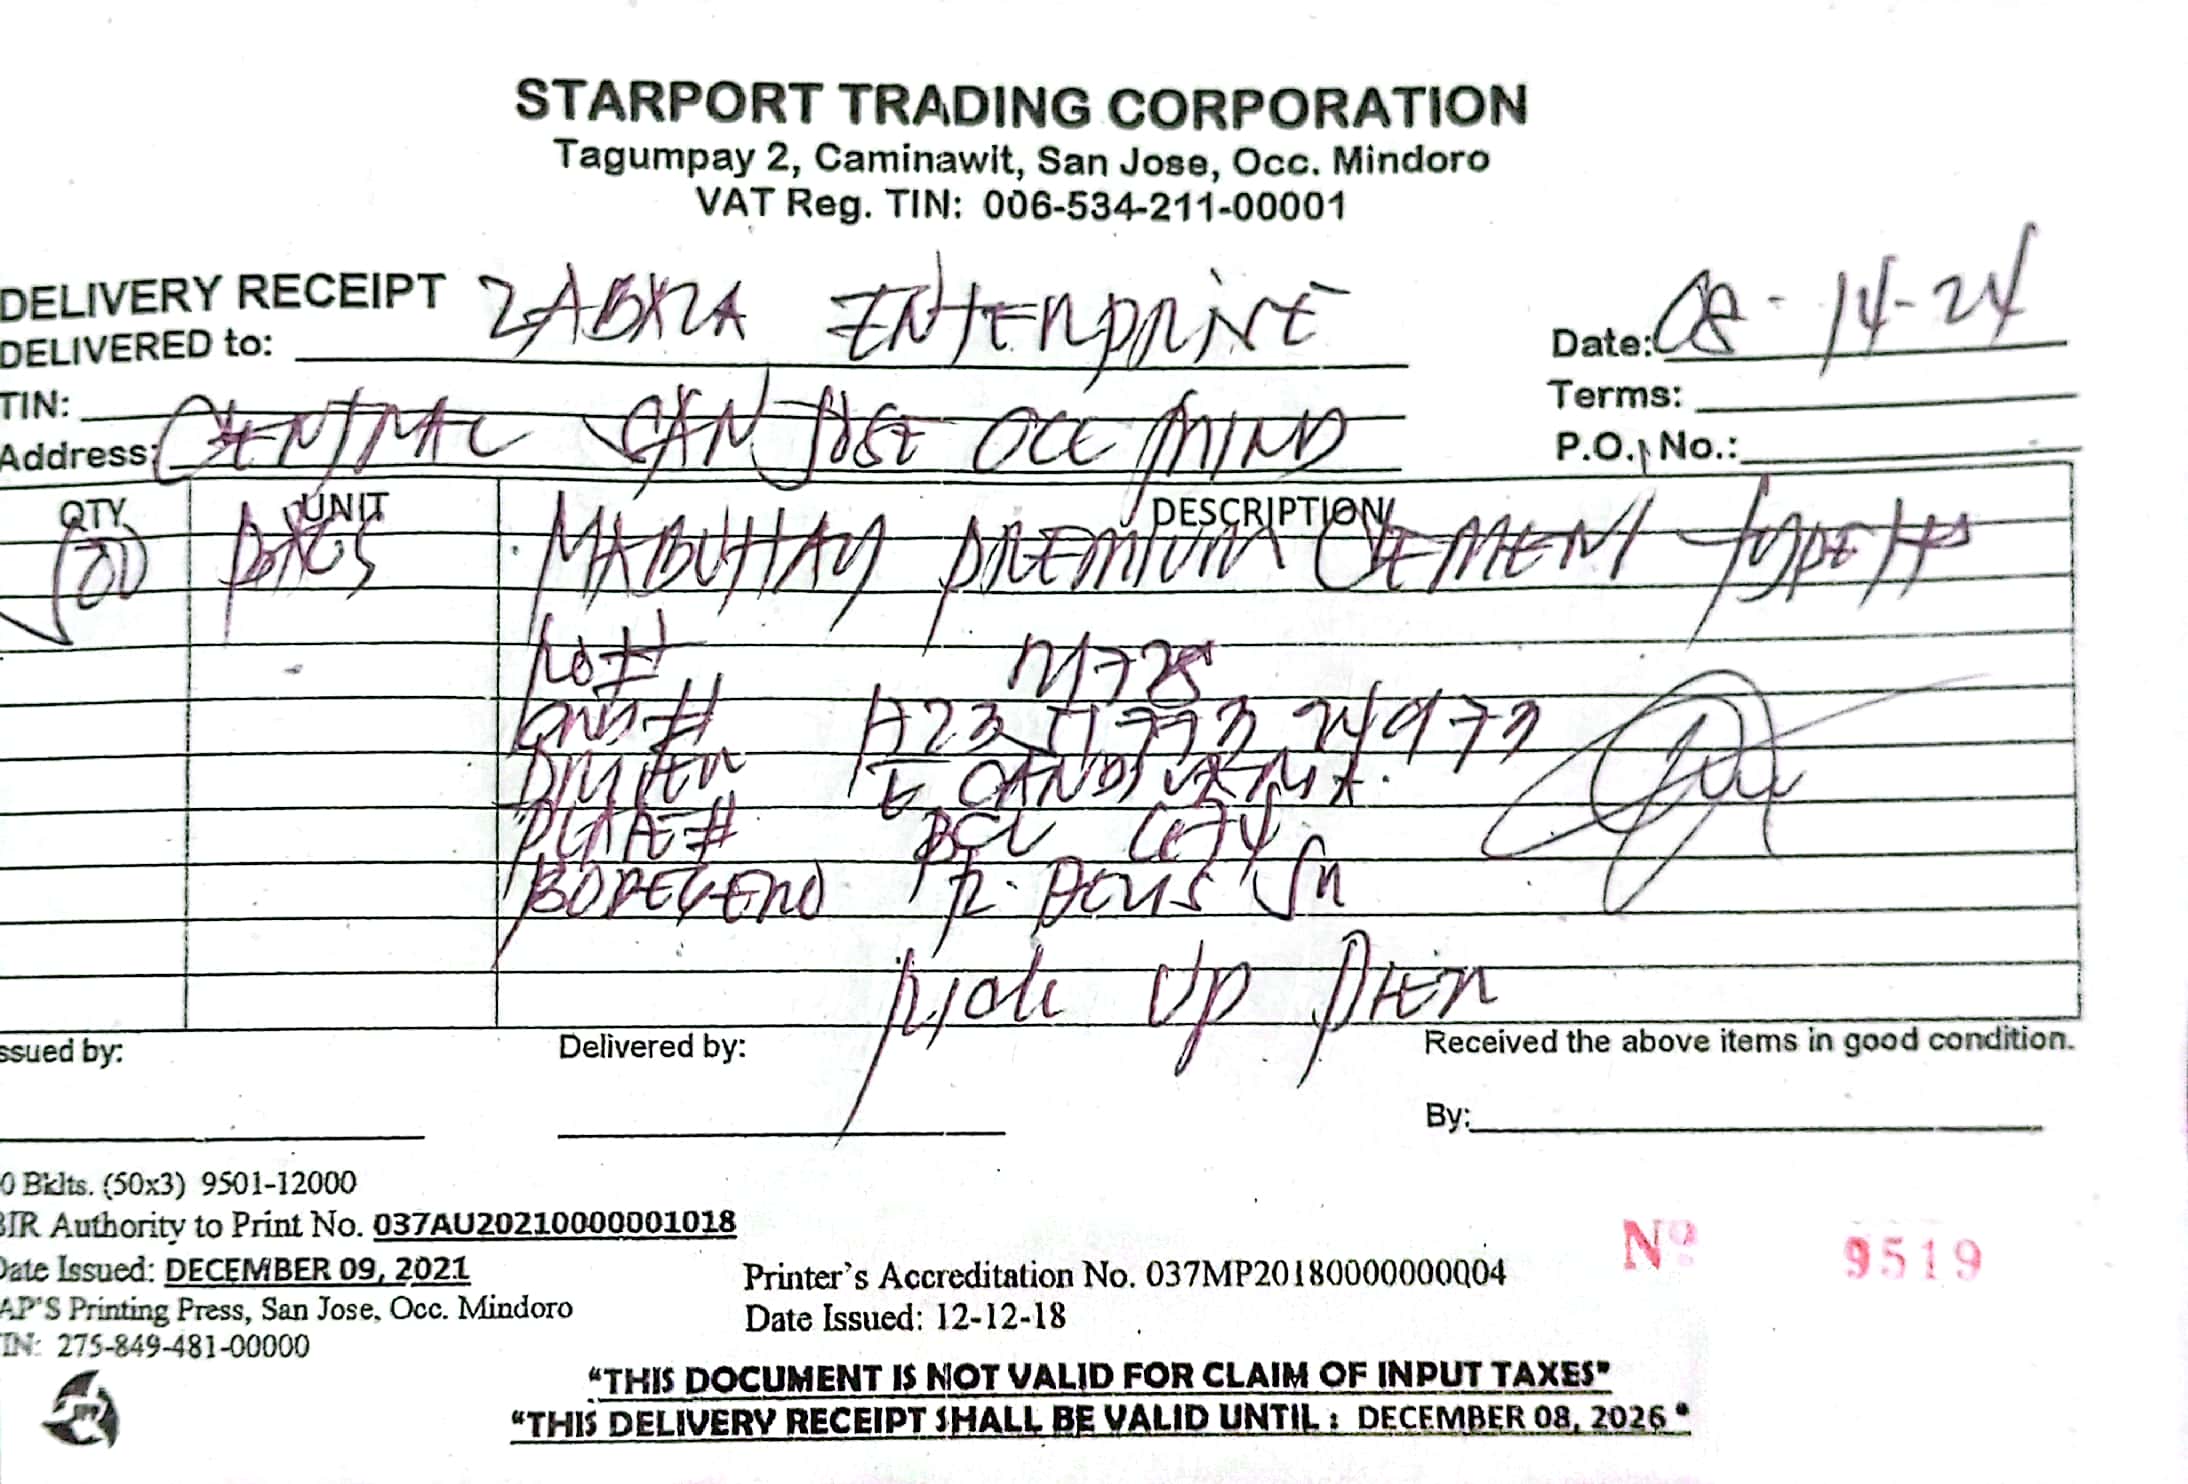 STARPORT TRADING CORPORATION
Tagumpay 2, Caminawit, San Jose, Occ. Mindoro
VAT Reg. TIN: 006-534-211-00001
DELIVERY RECEIPT
DELIVERED to: ENTERPRISE
Date: 08-14-24
TIN:
Terms:
Address: CENTRAL SAN JOSE OCC MIND
P.O. No.:
QTY UNIT DESCRIPTION
BAGS MABUHAY PREMIUM CEMENT TYPE
DRIVER
PLATE# BCL
BODEGERO
PICK UP PIER
ssued by: Delivered by: Received the above items in good condition.
By:
0 Bklts. (50x3) 9501-12000
BIR Authority to Print No. 037AU20210000001018
Date Issued: DECEMBER 09, 2021
AP'S Printing Press, San Jose, Occ. Mindoro
TIN: 275-849-481-00000
Printer's Accreditation No. 037MP20180000000004
Date Issued: 12-12-18
Nº 9519
"THIS DOCUMENT IS NOT VALID FOR CLAIM OF INPUT TAXES"
"THIS DELIVERY RECEIPT SHALL BE VALID UNTIL : DECEMBER 08, 2026"